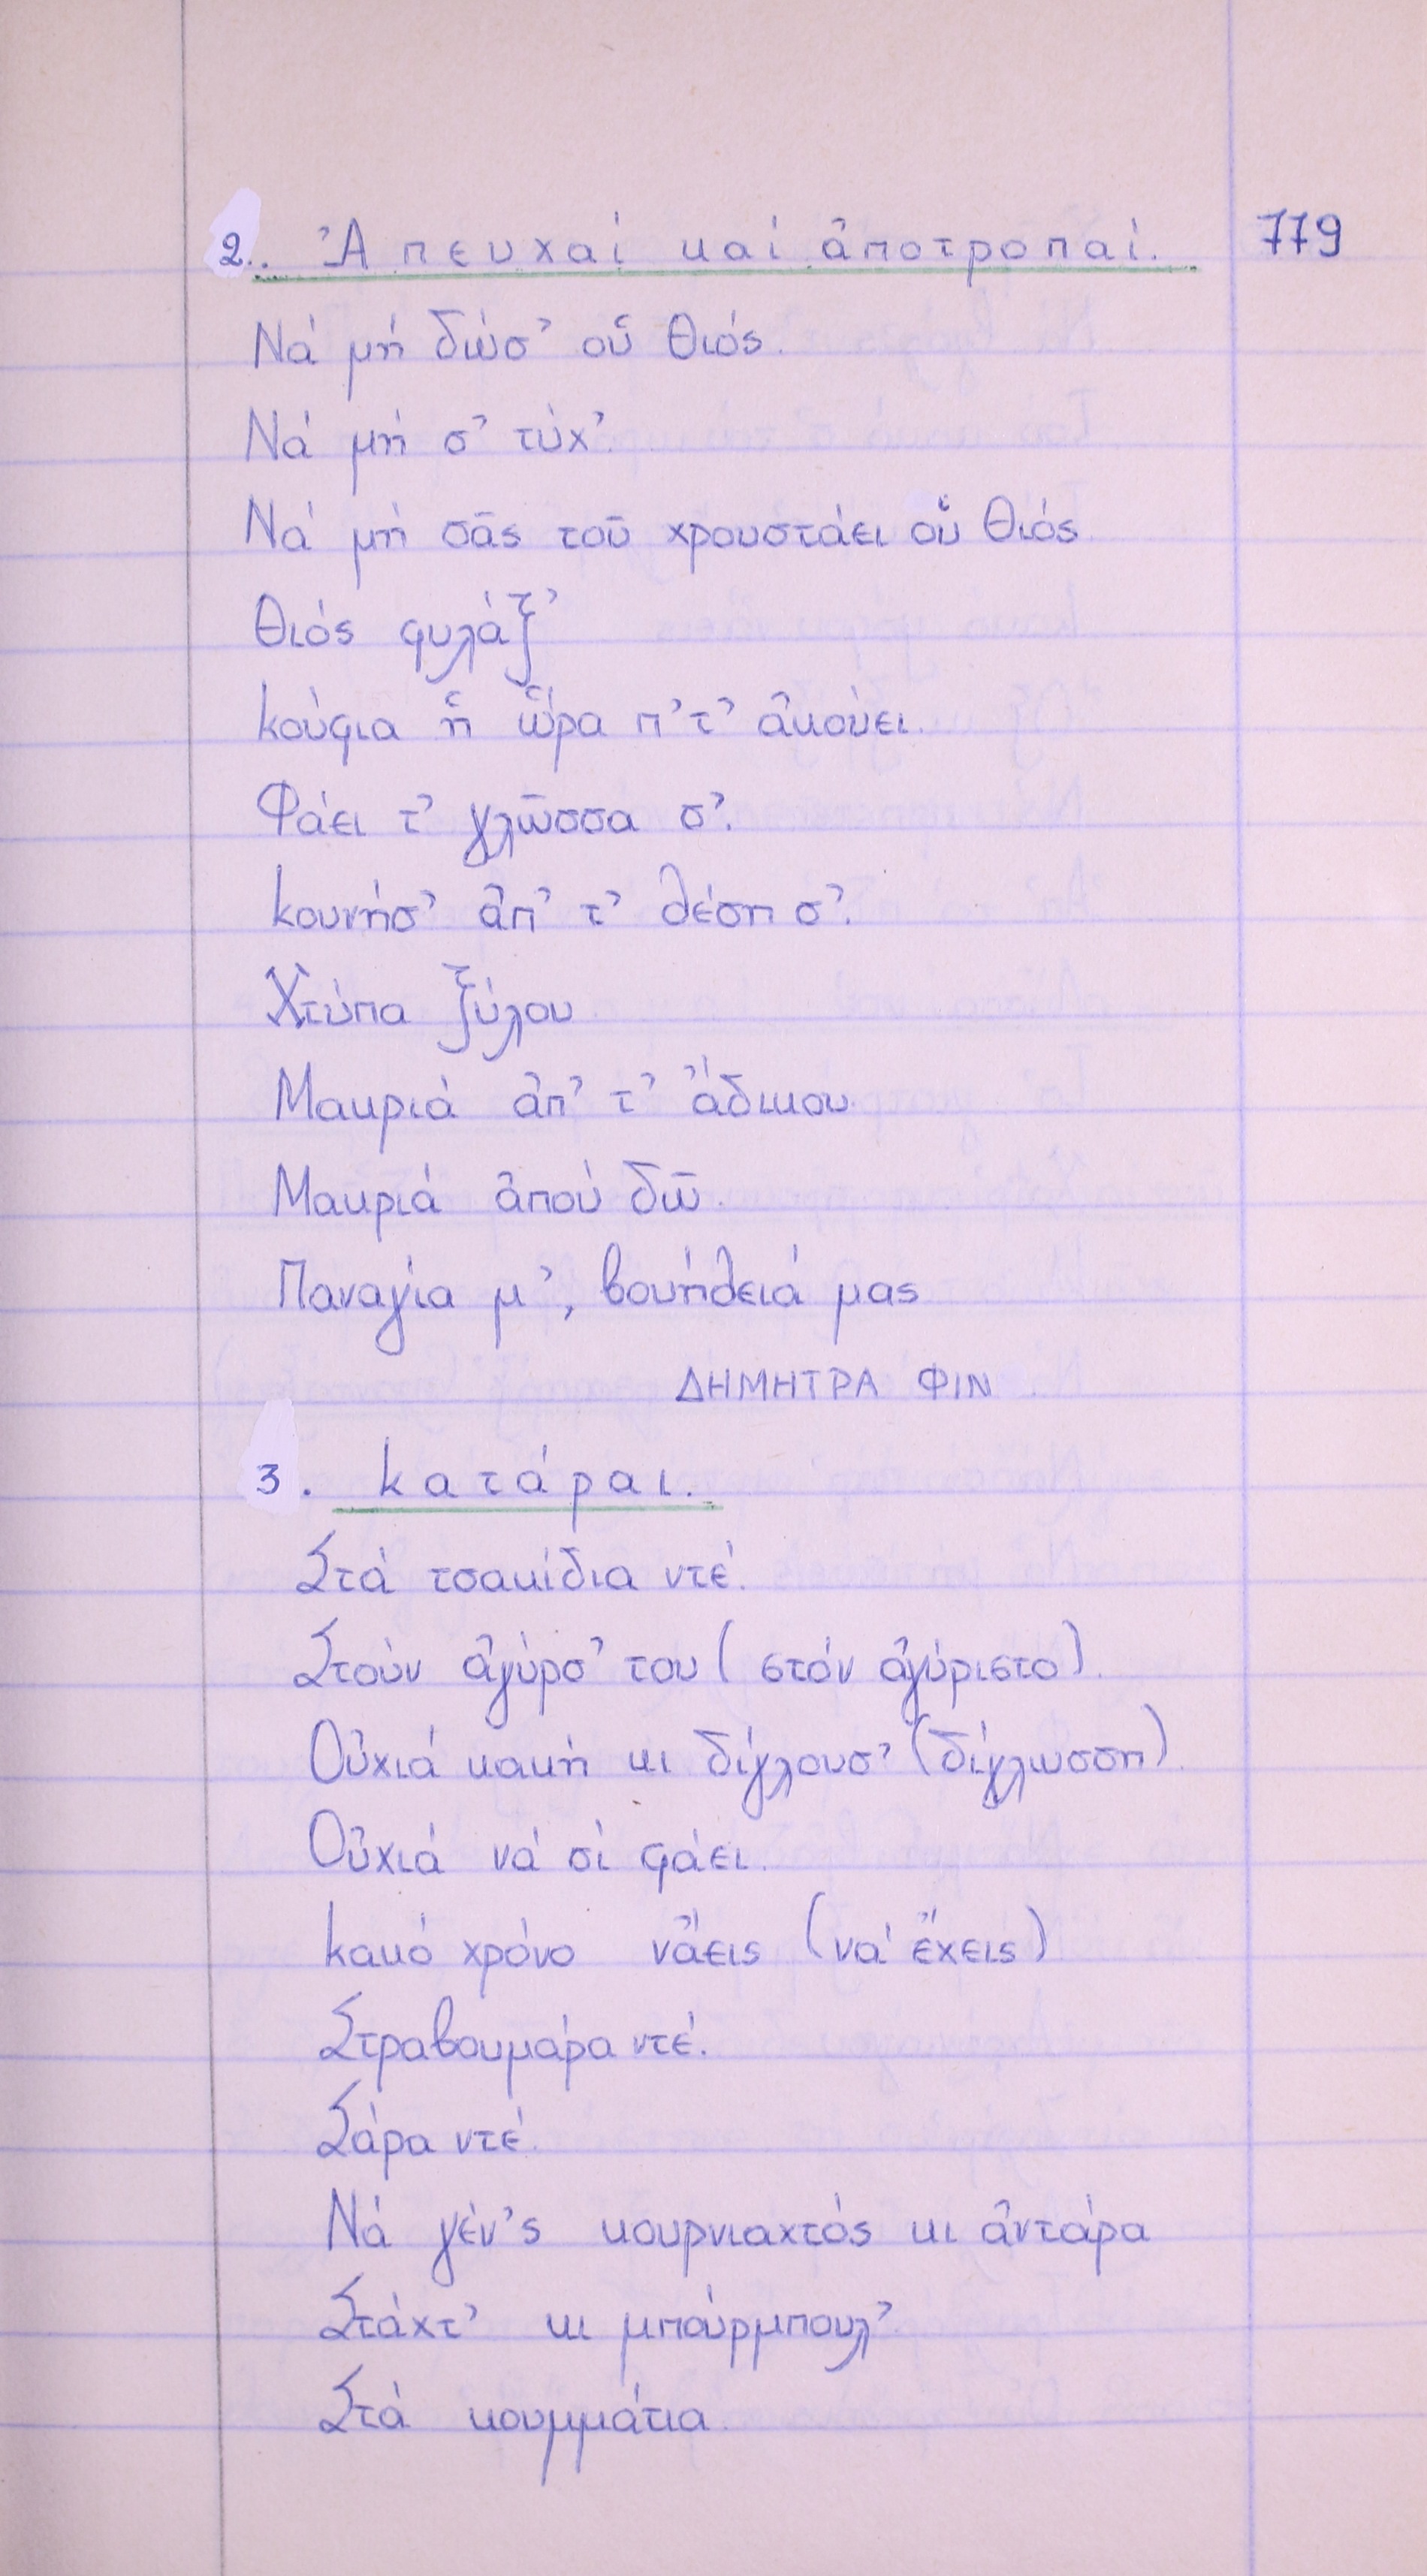 2. Ἀπευχαί καί ἀποτροπαί. 779
Νά μή δώσ᾿ οὗ Θιός.
Νά μή σ᾿ τύχ᾿.
Νά μή σᾶς τοῦ χρουστάει οὗ Θιός
Θιός φυλάξ᾿
κούφια ἡ ὥρα π᾿τ᾿ ἀκούει.
Φάει τ᾿ γλῶσσα σ᾿.
κουνήσ᾿ ἀπ᾿ τ᾿ θέση σ᾿.
Χτύπα ξύλου
Μακριά ἀπ᾿ τ᾿ ἄδικου
Μακριά ἀπού δῶ.
Παναγία μ᾿, βουήθειά μας
ΔΗΜΗΤΡΑ ΦΙΝ
3. κατάραι.
Στά τσακίδια ντέ.
Στούν ἀγύρσ᾿ του (στόν ἀγύριστο).
Οὐχιά κακή κι δίγλουσ᾿ (δίγλωσση).
Οὐχιά νά σί φάει.
κακό χρόνο νἄεις (νά ἔχεις)
Στραβουμάρα ντέ.
Σάρα ντέ.
Νά γέν᾿ς κουρνιαχτός κι ἀντάρα
Στάχτ᾿ κι μπούρμπουλ᾿.
Στά κουμμάτια.